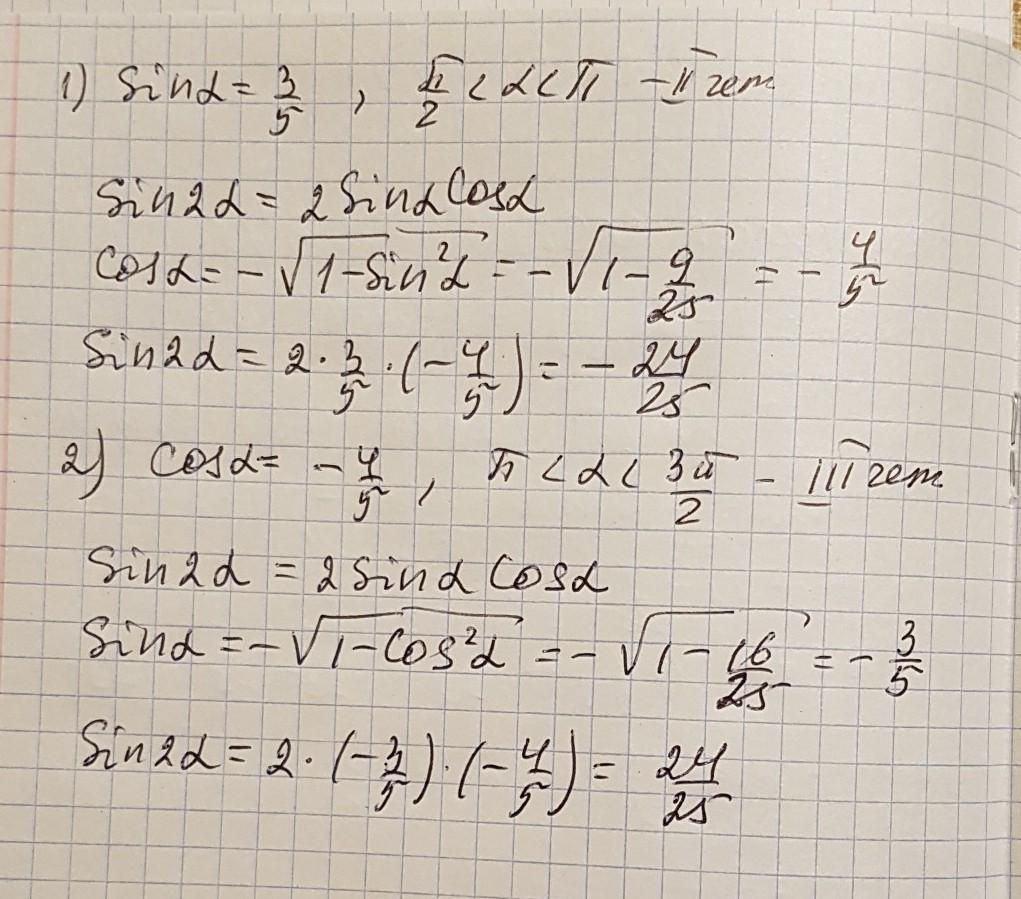 1) Sinα = 3/5 , π/2 < α < π - II чет
Sin2α = 2SinαCosα
Cosα = -√(1-Sin²α) = -√(1-9/25) = -4/5
Sin2α = 2·3/5·(-4/5) = -24/25
2) Cosα = -4/5 , π < α < 3π/2 - III чет
Sin2α = 2SinαCosα
Sinα = -√(1-Cos²α) = -√(1-16/25) = -3/5
Sin2α = 2·(-3/5)·(-4/5) = 24/25